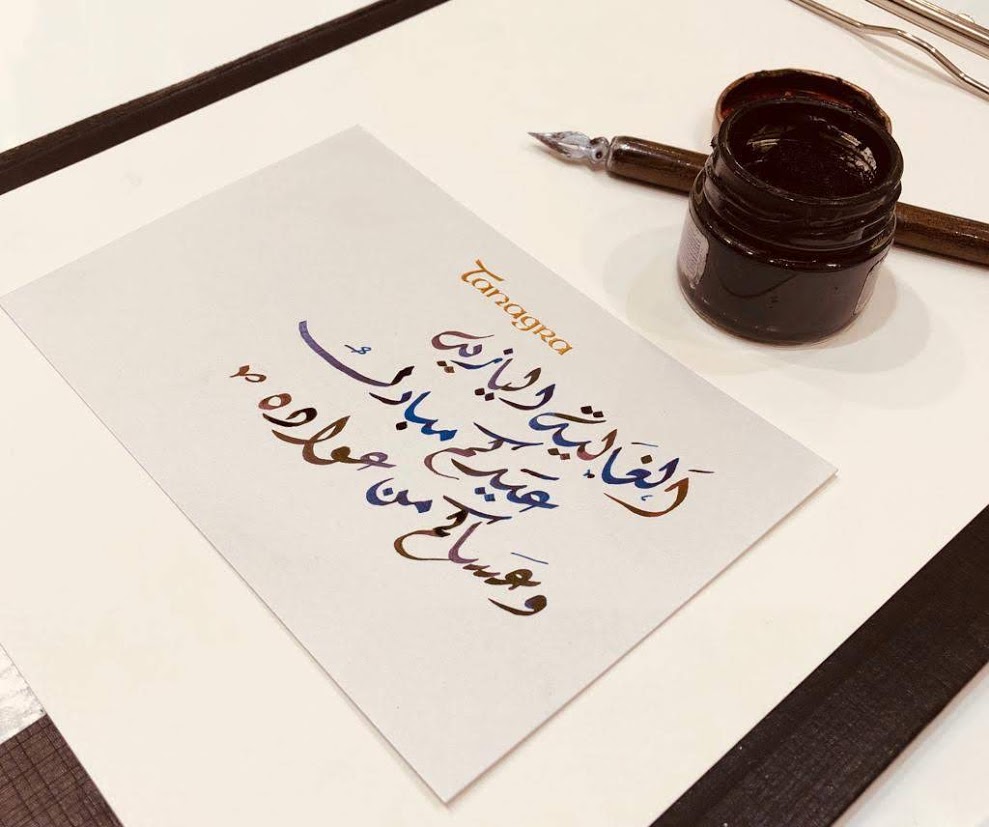 Tanagra
الغالية اليازيه
عيدكم مبارك
وعساكم من عواده